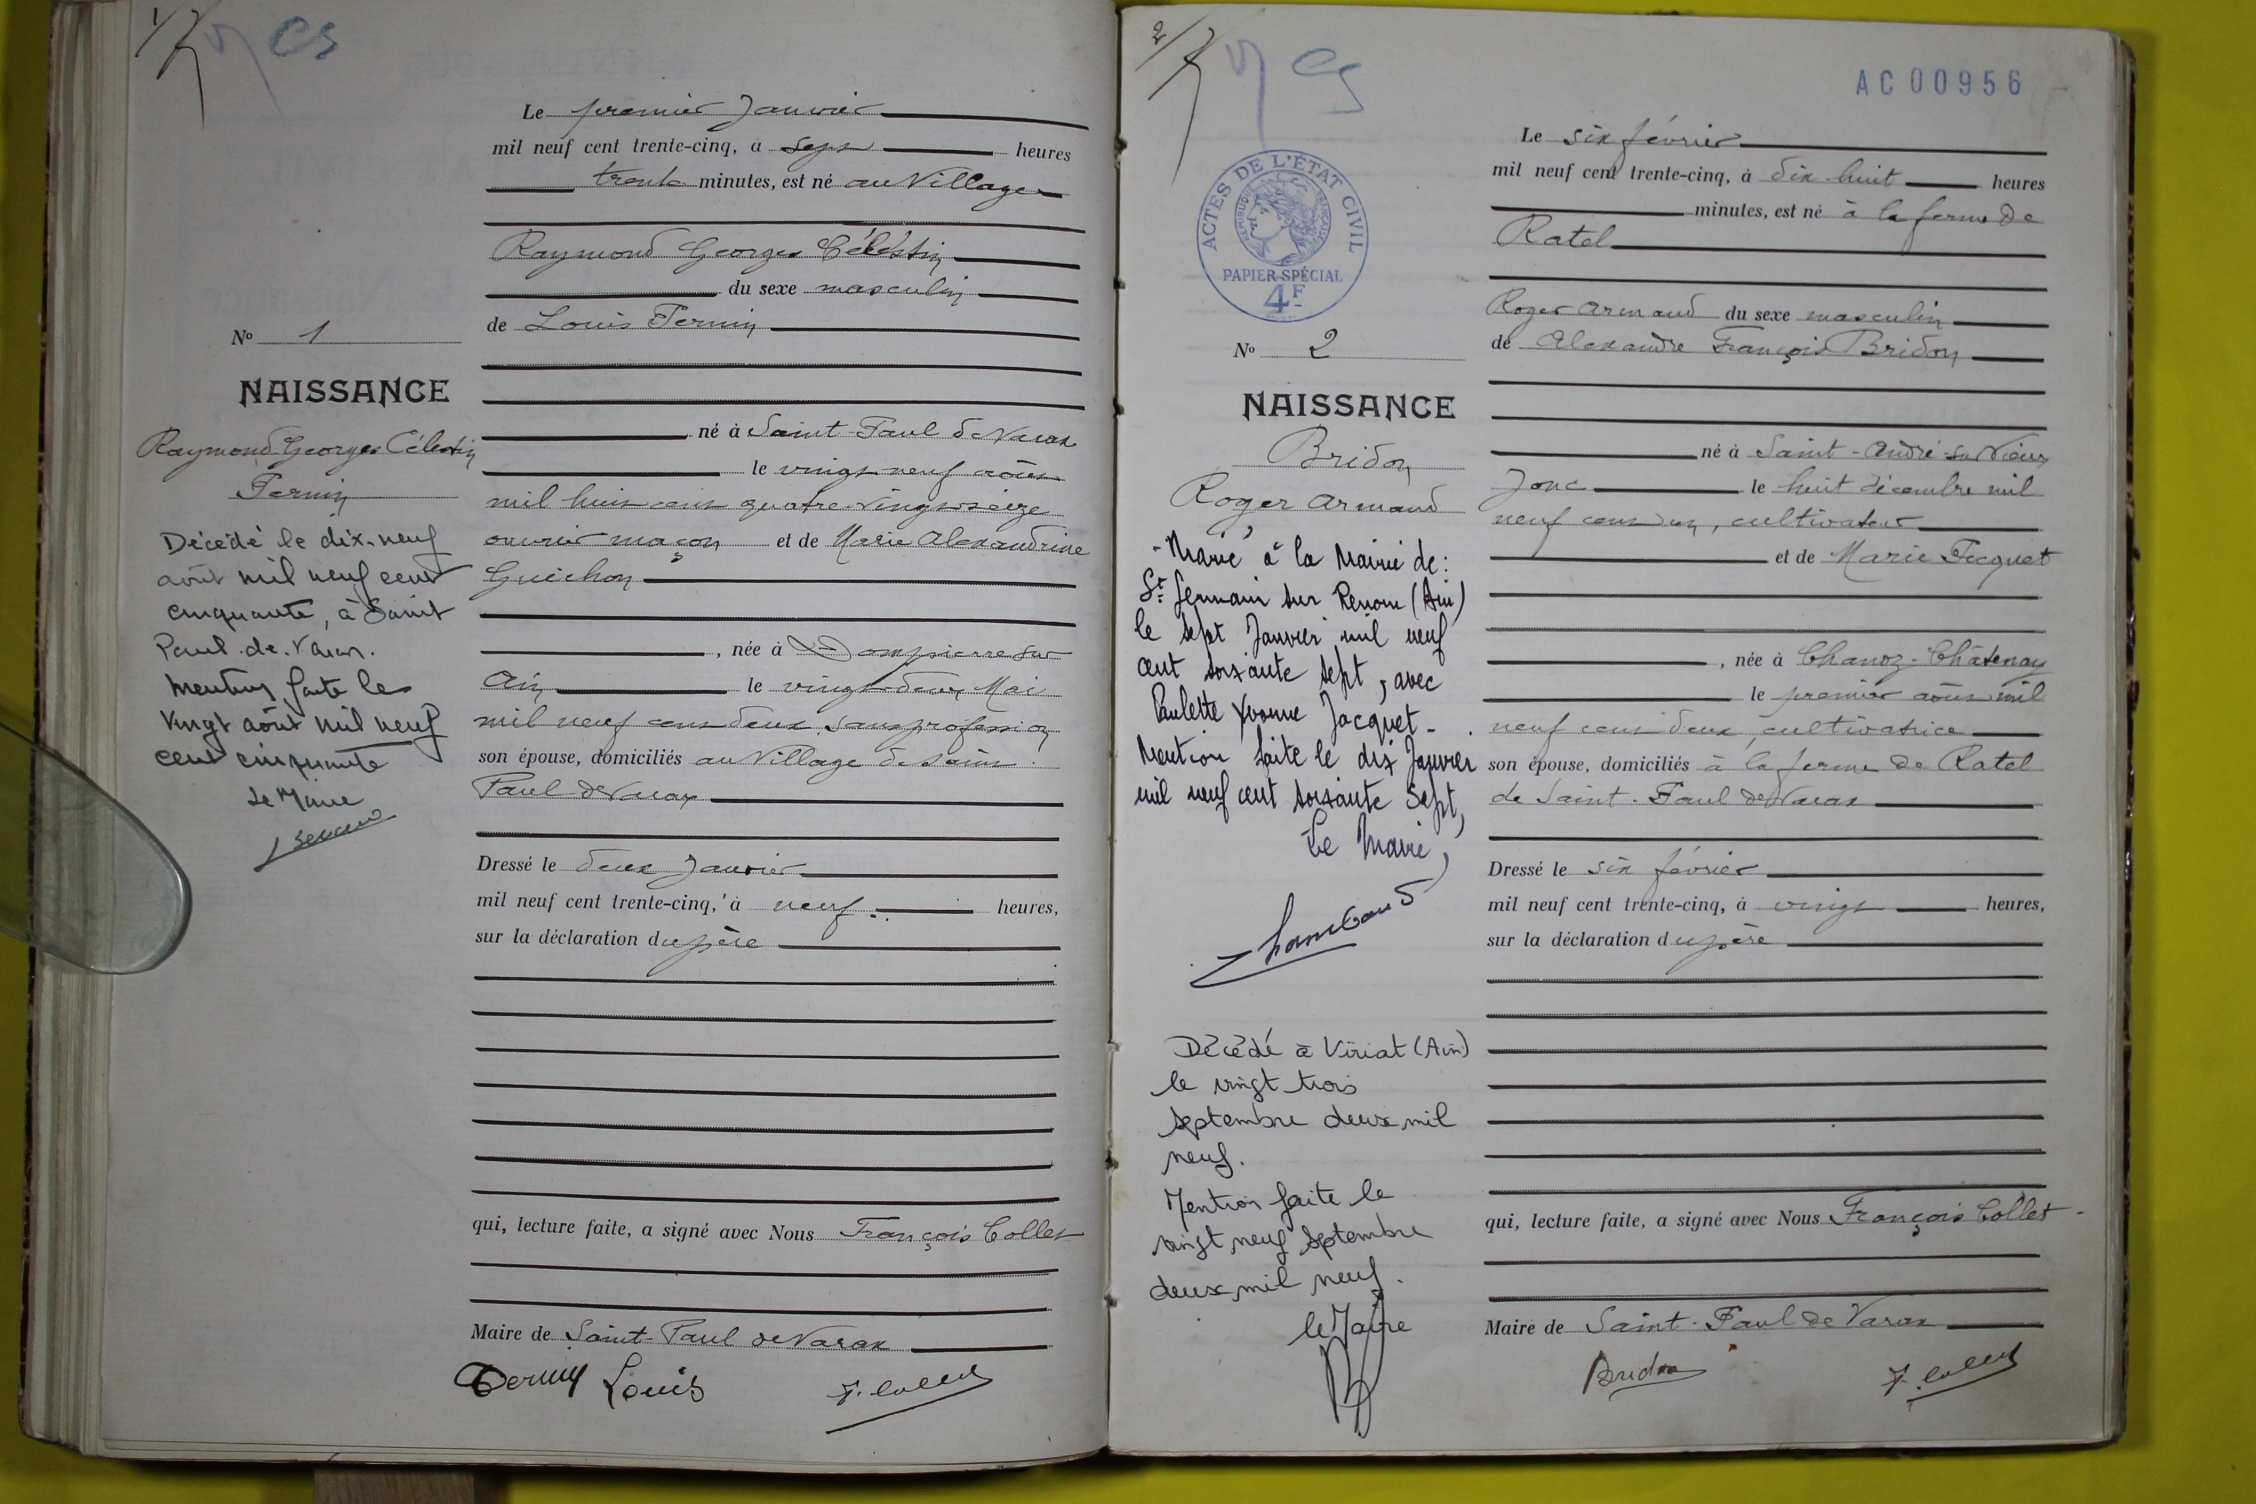 1/
CS
Le premier Janvier
mil neuf cent trente-cinq, à sept heures
trente minutes, est né au Village
Raymond Georges Célestin
du sexe masculin
de Louis
né à Saint-Paul de Varax
le vingt neuf août
mil huit cent quatre-vingt seize
ouvrier maçon et de Marie Alexandrine
Guichon
, née à Dompierre sur
Ain le vingt-deux Mai
mil neuf cent deux, sans profession
son épouse, domiciliés au Village de Saint
Paul de Varax
Dressé le deux Janvier
mil neuf cent trente-cinq, à neuf heures,
sur la déclaration du père
qui, lecture faite, a signé avec Nous François Collet
Maire de Saint-Paul de Varax
Louis
F. Collet
No 1
NAISSANCE
Raymond Georges Célestin
Décédé le dix-neuf
août mil neuf cent
cinquante, à Saint
Paul-de-Varax.
Mention faite le
vingt août mil neuf
cent cinquante
Le Maire
2/
CS
AC 00956
ACTES DE L'ÉTAT CIVIL
RÉPUBLIQUE FRANÇAISE
PAPIER SPÉCIAL
4F
No 2
NAISSANCE
Bridon
Roger Armand
- Marié à la Mairie de :
St Germain sur Renom (Ain)
le sept Janvier mil neuf
cent soixante sept, avec
Paulette Yvonne Jacquet -
Mention faite le dix Janvier
mil neuf cent soixante sept,
Le Maire,
Décédé à Viriat (Ain)
le vingt trois
septembre deux mil
neuf.
Mention faite le
vingt neuf septembre
deux mil neuf.
le Maire
Le six février
mil neuf cent trente-cinq, à dix huit heures
minutes, est né à la ferme de
Ratel
Roger Armand du sexe masculin
de Alexandre François Bridon
né à Saint-André-sur Vieux
Jonc le huit décembre mil
neuf cent un, cultivateur
et de Marie
, née à Chanoz-Châtenay
le premier août mil
neuf cent deux, cultivatrice
son épouse, domiciliés à la ferme de Ratel
de Saint-Paul de Varax
Dressé le six février
mil neuf cent trente-cinq, à vingt heures,
sur la déclaration du père
qui, lecture faite, a signé avec Nous François Collet
Maire de Saint-Paul de Varax
Bridon
F. Collet